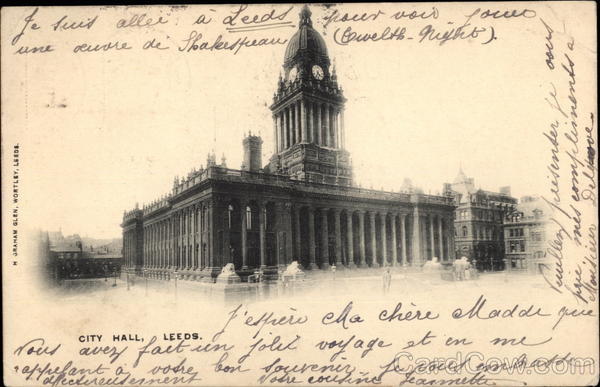 Je suis allée à Leeds pour voir jouer
une œuvre de Shakespeau (Twelth-Night).
Veuillez présenter je vous
prie mes compliments à
Monsieur
H GRAHAM GLEN, WORTLEY, LEEDS.
CITY HALL, LEEDS.
J'espère Ma chère Madde que
Vous avez fait un Joli voyage et en me
rappelant à votre bon souvenir Je vous embrasse
affectueusement Votre cousine Jeannette
CardCow.com